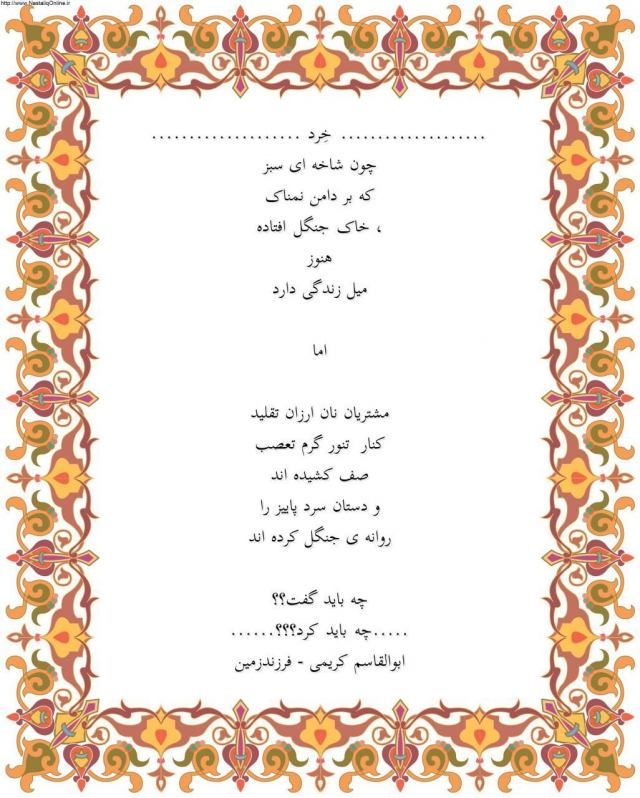 http://www.NastaliqOnline.ir
.................... خِرد ....................
چون شاخه ای سبز
که بر دامن نمناک
، خاک جنگل افتاده
هنوز
میل زندگی دارد
اما
مشتریان نان ارزان تقلید
کنار تنور گرم تعصب
صف کشیده اند
و دستان سرد پاییز را
روانه ی جنگل کرده اند
چه باید گفت؟؟
.....چه باید کرد؟؟؟......
ابوالقاسم کریمی - فرزندزمین